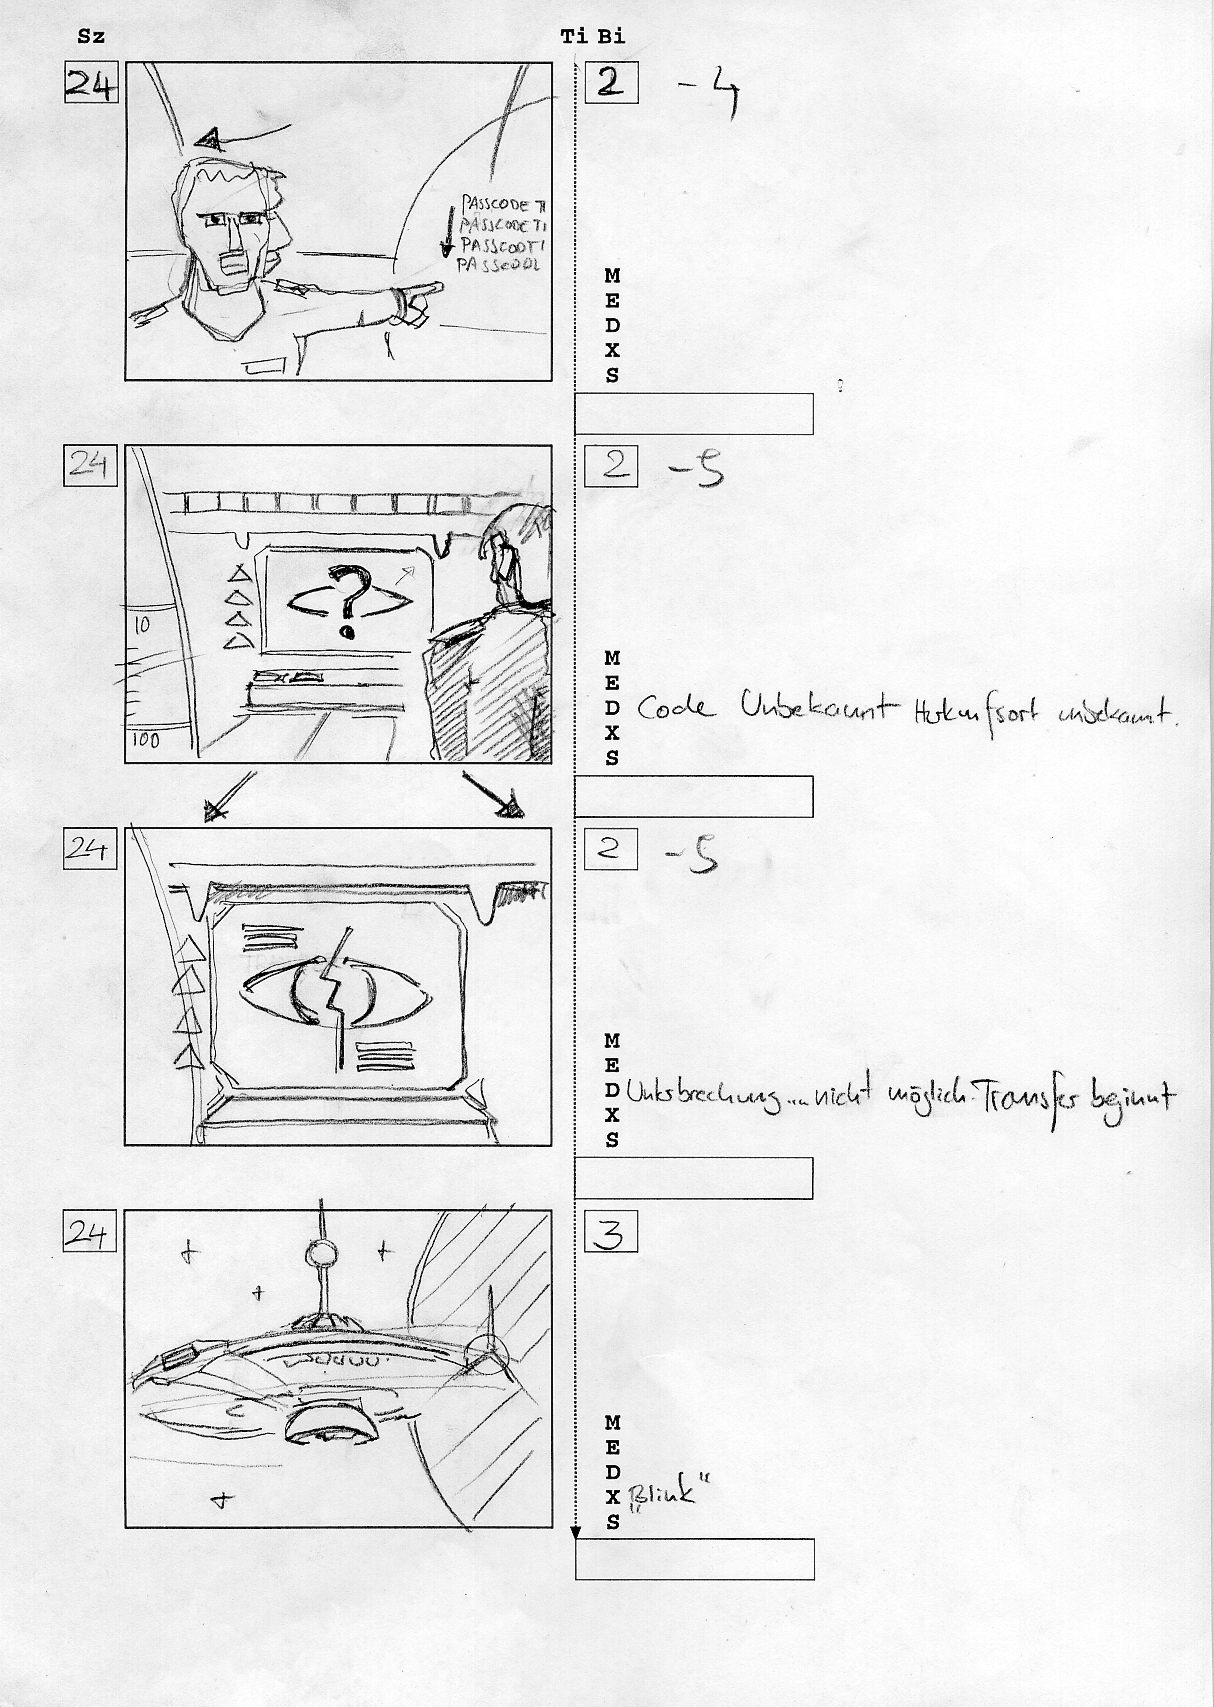 Sz Ti Bi
24 2 -4
PASSCODE TI
PASSCODE TI
PASSCODTI
M
E
D
X
S
24 2 -5
?
10
100
M
E
D Code Unbekannt Herkunfsort unbekannt.
X
S
24 2 -5
M
E
D Unterbrechung... nicht möglich. Transfer beginnt
X
S
24 3
M
E
D
X „Blink“
S